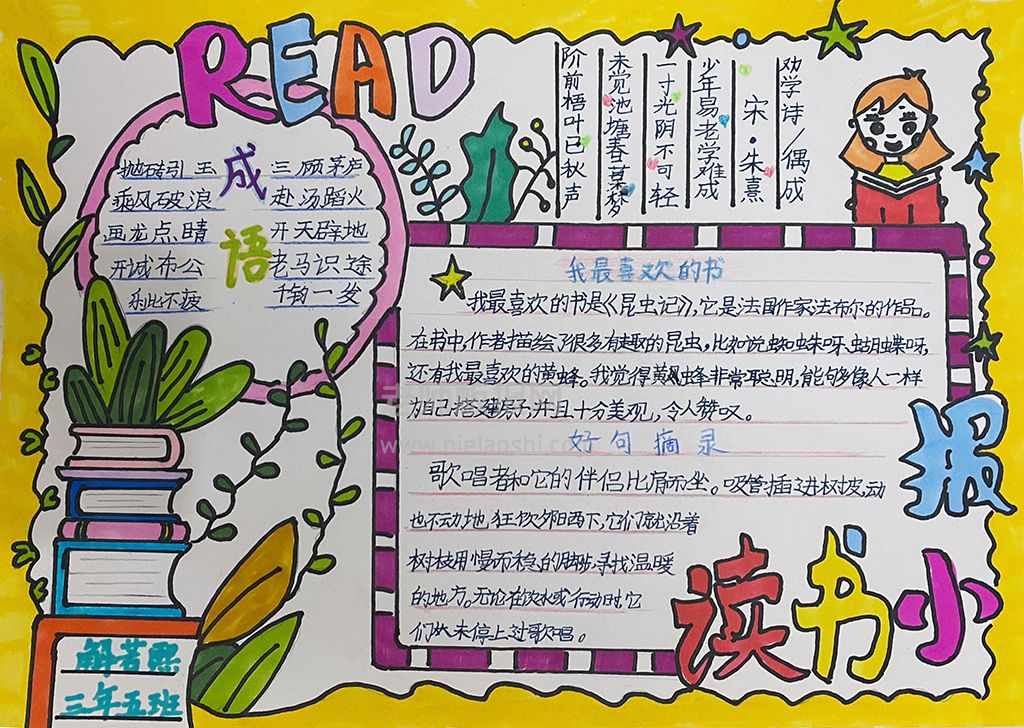 READ
成语
抛砖引玉
乘风破浪
画龙点睛
开诚布公
乐此不疲
三顾茅庐
赴汤蹈火
开天辟地
老马识途
千钧一发
劝学诗/偶成
宋·朱熹
少年易老学难成
一寸光阴不可轻
未觉池塘春草梦
阶前梧叶已秋声
我最喜欢的书
我最喜欢的书是《昆虫记》,它是法国作家法布尔的作品。
在书中,作者描绘了很多有趣的昆虫,比如说蜘蛛呀、蝴蝶呀,
还有我最喜欢的黄蜂。我觉得黄蜂非常聪明,能够像人一样
为自己搭建房子,并且十分美观,令人赞叹。
好句摘录
歌唱者和它的伴侣比肩而坐。吸管插进树皮,动
也不动地狂饮,夕阳西下,它们就沿着
树枝用慢而稳的脚步,寻找温暖
的地方。无论在饮水或行动时,它
们从未停止过歌唱。
读书小报
解若熙
三年五班
www.pielaoshi.com